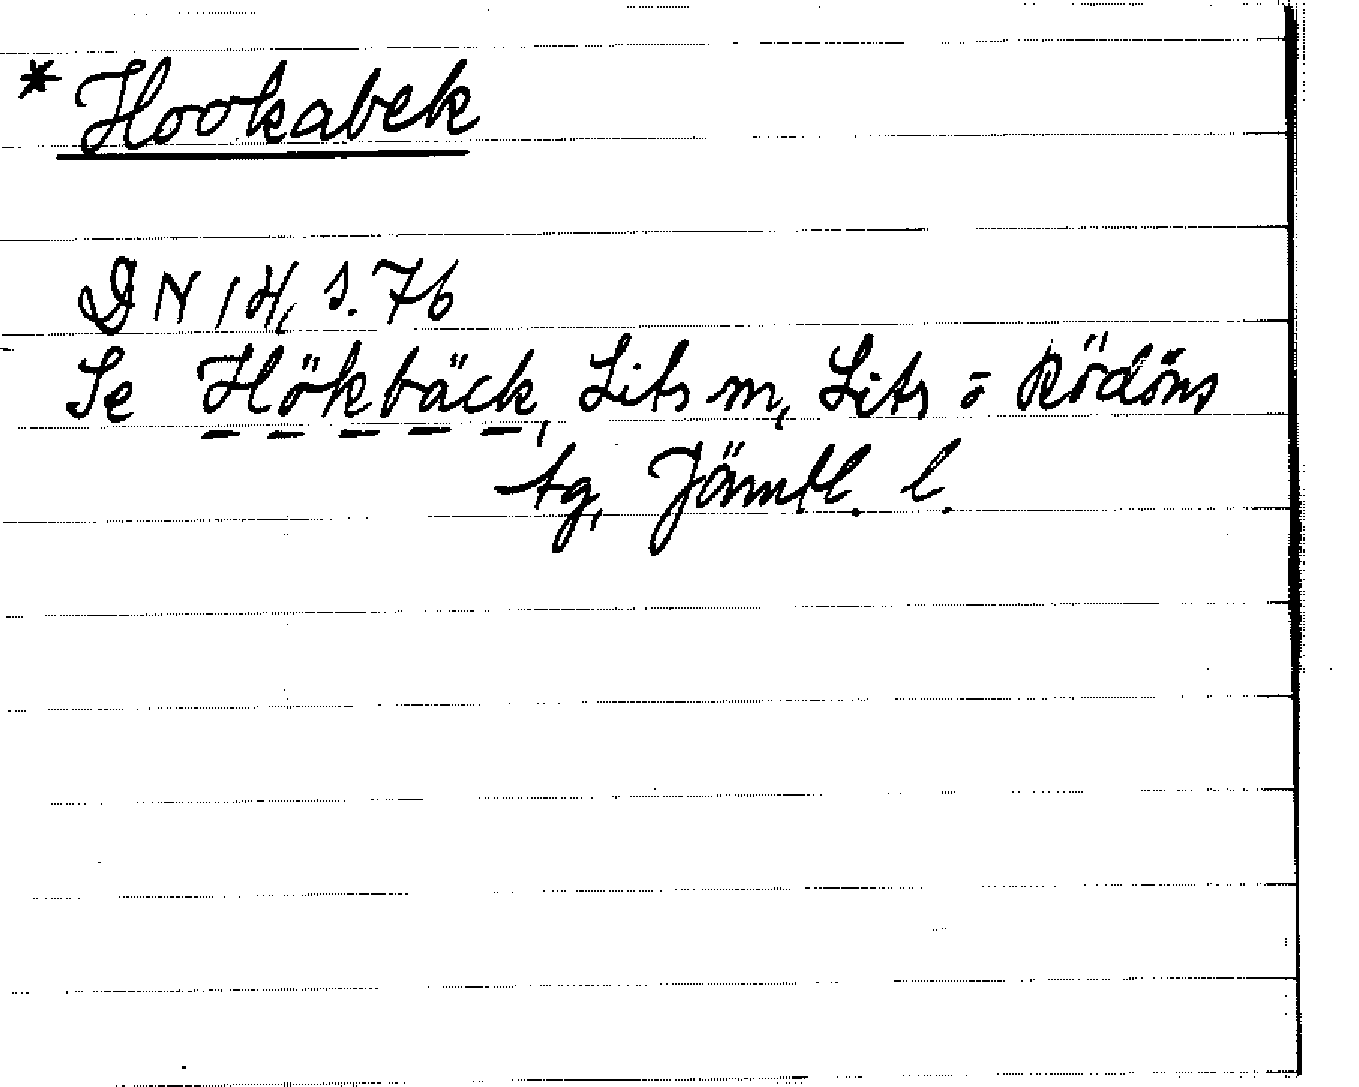 * Hookabek
DN 14, s. 76
Se Hökbäck, Lits sn, Lits o Rödöns
tg, Jämtl. l.